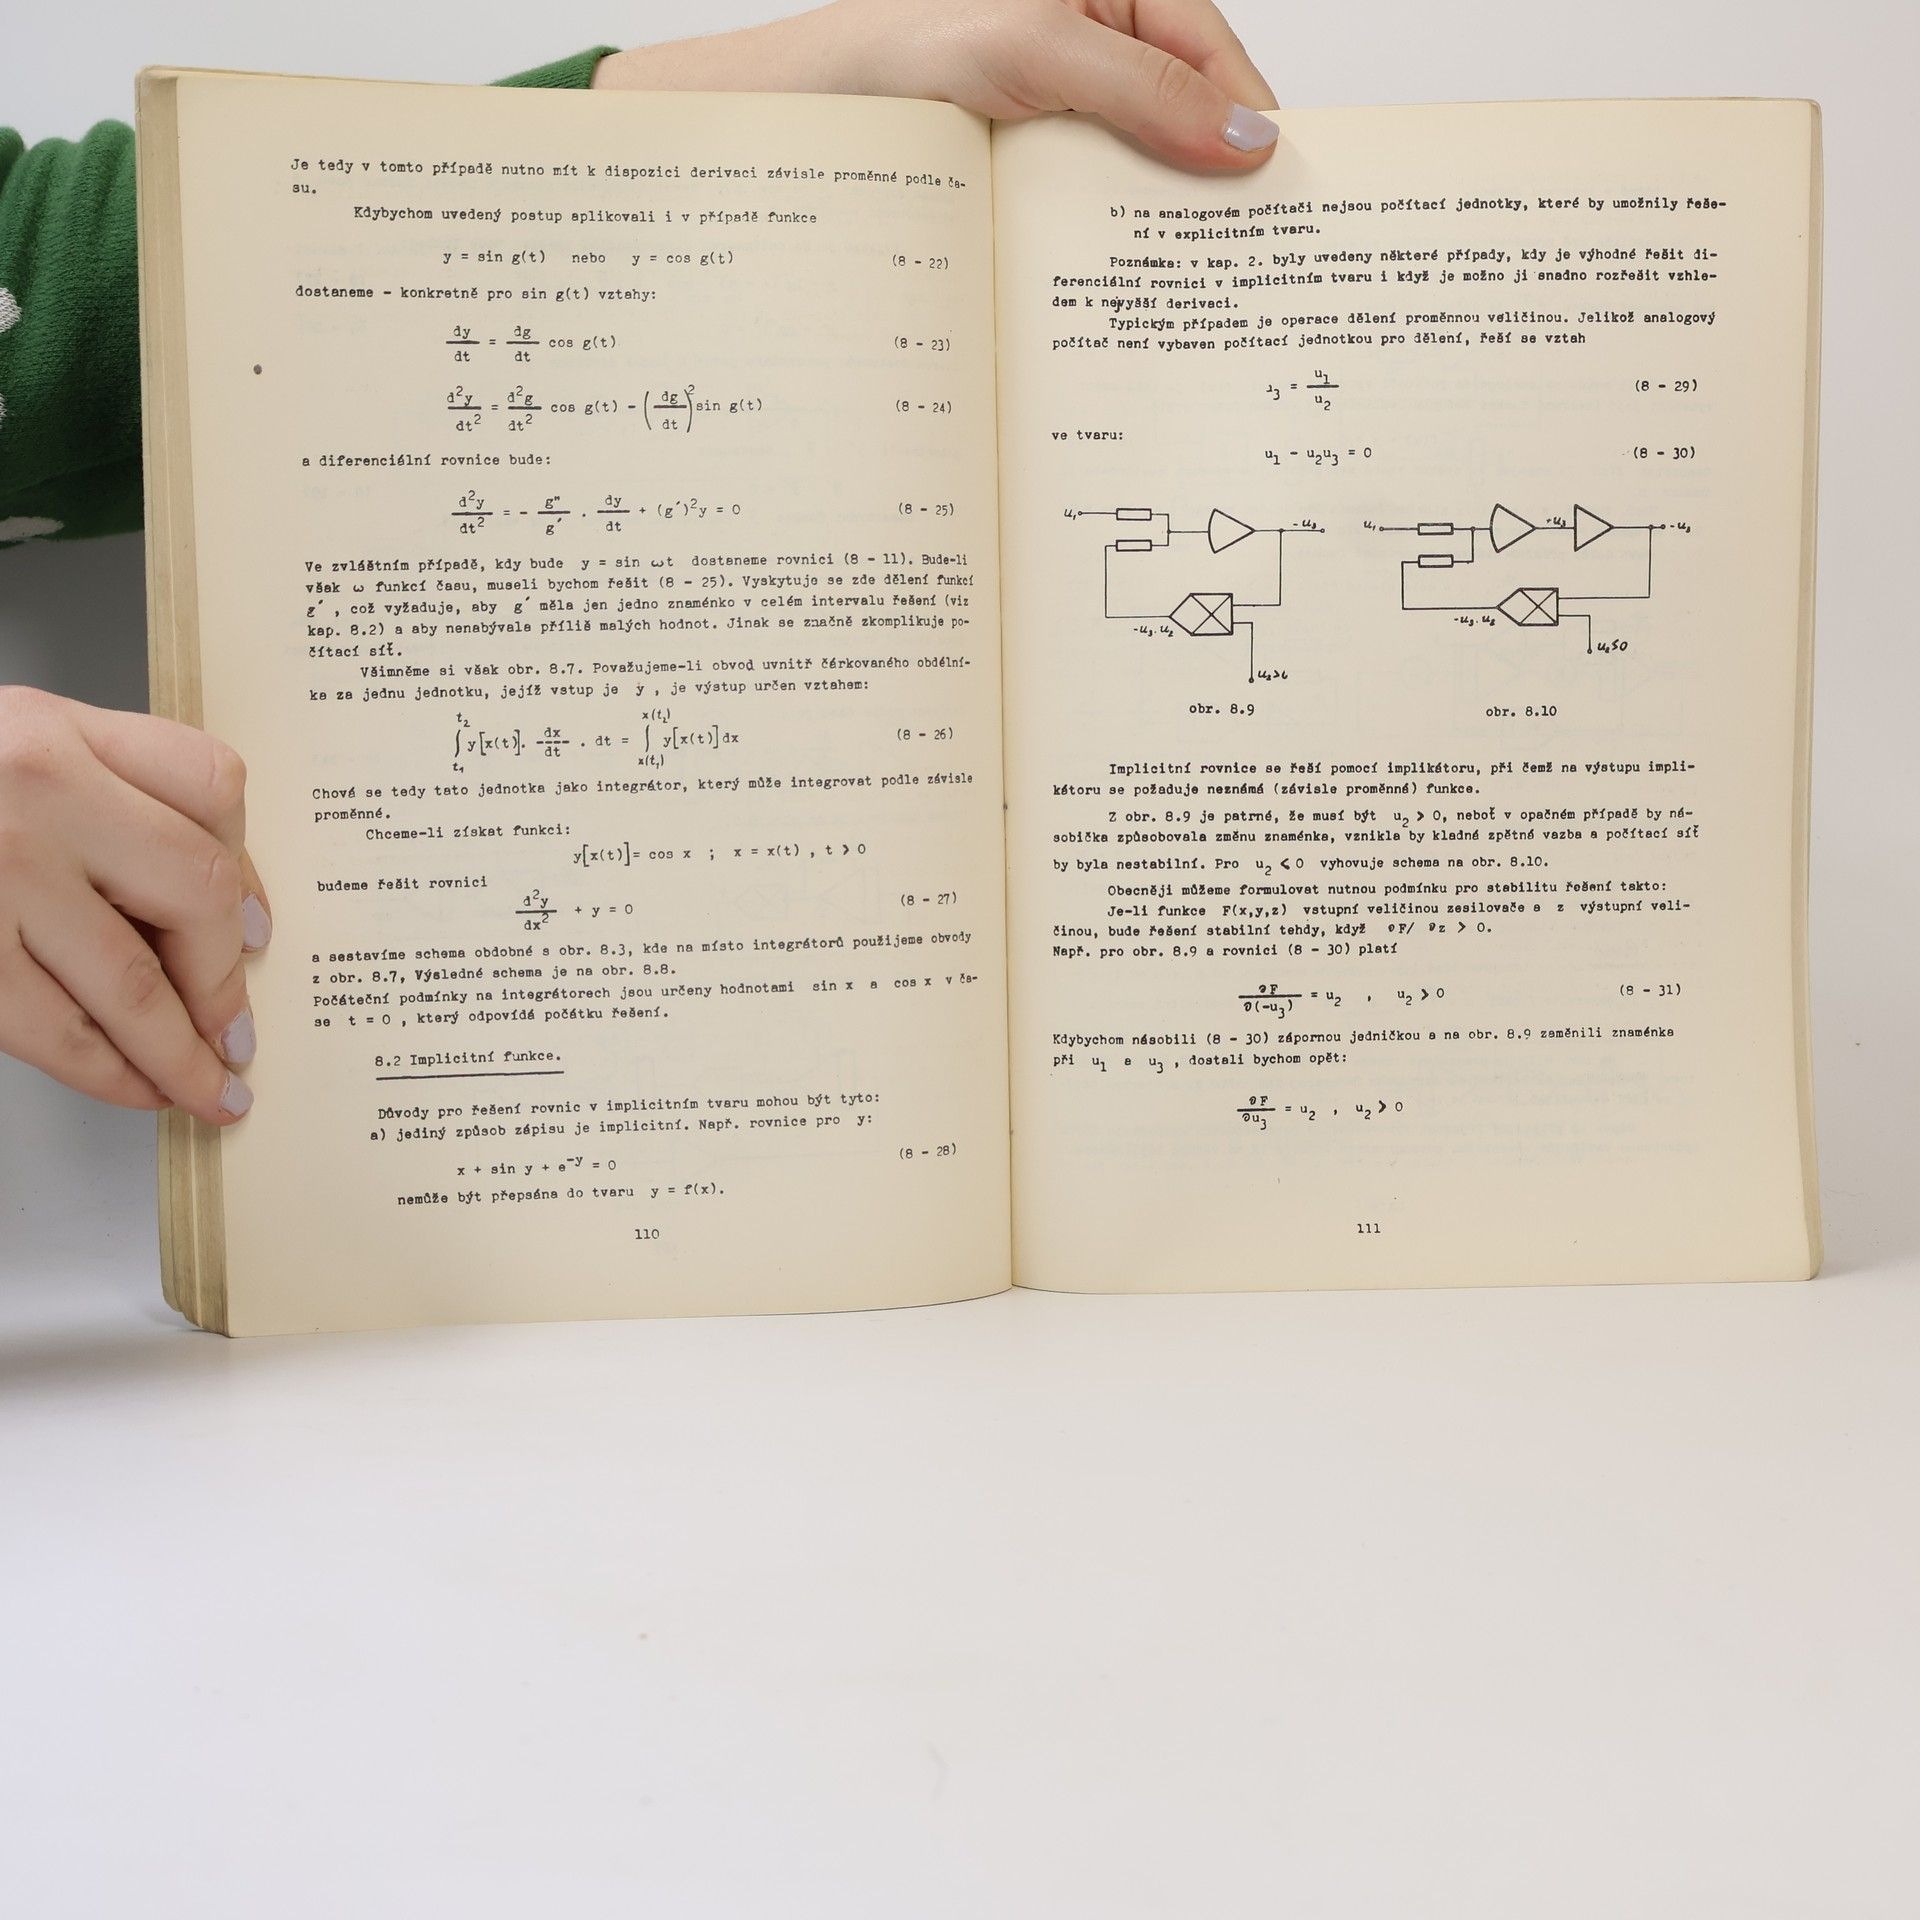 Je tedy v tomto případě nutno mít k dispozici derivaci závisle proměnné podle ča-
su.
Kdybychom uvedený postup aplikovali i v případě funkce
y = sin g(t) nebo y = cos g(t) (8 - 22)
dostaneme - konkretně pro sin g(t) vztahy:
dy/dt = dg/dt cos g(t) (8 - 23)
d²y/dt² = d²g/dt² cos g(t) - (dg/dt)² sin g(t) (8 - 24)
a diferenciální rovnice bude:
d²y/dt² = - g"/g´ . dy/dt + (g´)²y = 0 (8 - 25)
Ve zvláštním případě, kdy bude y = sin ωt dostaneme rovnici (8 - 11). Bude-li
však ω funkcí času, museli bychom řešit (8 - 25). Vyskytuje se zde dělení funkcí
g´ , což vyžaduje, aby g´ měla jen jedno znaménko v celém intervalu řešení (viz
kap. 8.2) a aby nenabývala příliš malých hodnot. Jinak se značně zkomplikuje po-
čítací síť.
Všimněme si však obr. 8.7. Považujeme-li obvod uvnitř čárkovaného obdélní-
ka za jednu jednotku, jejíž vstup je y , je výstup určen vztahem:
t₂ x(t₂)
∫ y[x(t)]. dx/dt . dt = ∫ y[x(t)]dx (8 - 26)
t₁ x(t₁)
Chová se tedy tato jednotka jako integrátor, který může integrovat podle závisle
proměnné.
Chceme-li získat funkci:
y[x(t)]= cos x ; x = x(t) , t > 0
budeme řešit rovnici
d²y/dx² + y = 0 (8 - 27)
a sestavíme schema obdobné s obr. 8.3, kde na místo integrátorů použijeme obvody
z obr. 8.7, Výsledné schema je na obr. 8.8.
Počáteční podmínky na integrátorech jsou určeny hodnotami sin x a cos x v ča-
se t = 0 , který odpovídá počátku řešení.
8.2 Implicitní funkce.
Důvody pro řešení rovnic v implicitním tvaru mohou být tyto:
a) jediný způsob zápisu je implicitní. Např. rovnice pro y:
x + sin y + e⁻ʸ = 0 (8 - 28)
nemůže být přepsána do tvaru y = f(x).
110
b) na analogovém počítači nejsou počítací jednotky, které by umožnily řeše-
ní v explicitním tvaru.
Poznámka: v kap. 2. byly uvedeny některé případy, kdy je výhodné řešit di-
ferenciální rovnici v implicitním tvaru i když je možno ji snadno rozřešit vzhle-
dem k nejvyšší derivaci.
Typickým případem je operace dělení proměnnou veličinou. Jelikož analogový
počítač není vybaven počítací jednotkou pro dělení, řeší se vztah
u₃ = u₁/u₂ (8 - 29)
ve tvaru:
u₁ - u₂u₃ = 0 (8 - 30)
u₁ -u₃
-u₃.u₂
u₂>0
obr. 8.9
u₁ +u₃ -u₃
-u₃.u₂
u₂≤0
obr. 8.10
Implicitní rovnice se řeší pomocí implikátoru, při čemž na výstupu impli-
kátoru se požaduje neznámá (závisle proměnná) funkce.
Z obr. 8.9 je patrné, že musí být u₂ > 0, neboť v opačném případě by ná-
sobička způsobovala změnu znaménka, vznikla by kladná zpětná vazba a počítací síť
by byla nestabilní. Pro u₂ < 0 vyhovuje schema na obr. 8.10.
Obecněji můžeme formulovat nutnou podmínku pro stabilitu řešení takto:
Je-li funkce F(x,y,z) vstupní veličinou zesilovače a z výstupní veli-
činou, bude řešení stabilní tehdy, když ∂F/ ∂z > 0.
Např. pro obr. 8.9 a rovnici (8 - 30) platí
∂F/∂(-u₃) = u₂ , u₂ > 0 (8 - 31)
Kdybychom násobili (8 - 30) zápornou jedničkou a na obr. 8.9 zaměnili znaménka
při u₁ a u₃ , dostali bychom opět:
∂F/∂u₃ = u₂ , u₂ > 0
111